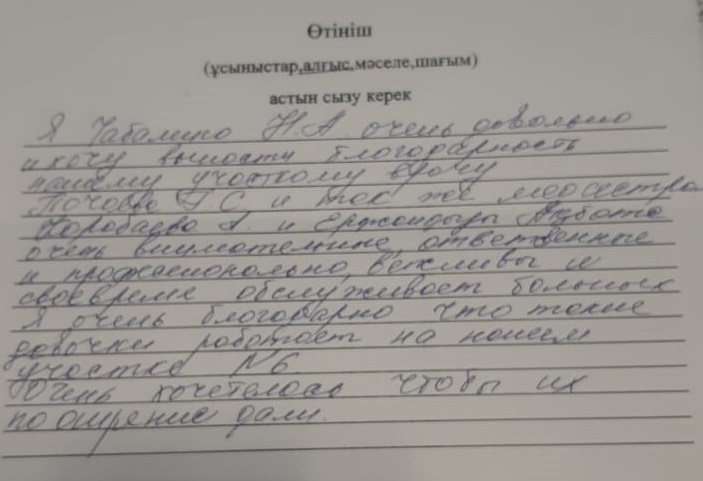 Өтініш
(ұсыныстар,алғыс,мәселе,шағым)
астын сызу керек
Я Н.А очень довольно
и хочу выности благодарность
нашему участкому врачу
А.С, и так же медсестра
Коробаева А. и
очень внимательные, ответственные
и професионольно, вежливы и
своевреме обслуживает больных
Я очень благодарно что такие
девочки работает на нашем
участке №6.
Очень хочетелось чтобы их
поощрение дали.